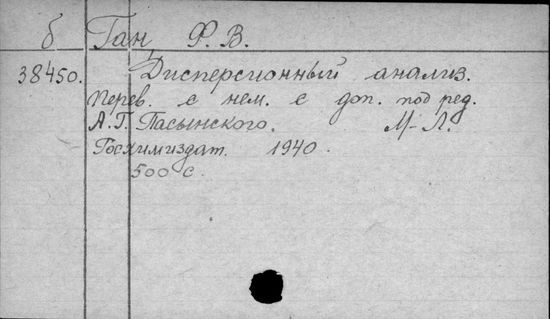 б Ган Ф. В.
38450. Дисперсионный анализ.
Перев. с нем. с доп. под ред.
А. Г. Пасынского. М-Л.
Госхимиздат. 1940.
500 с.